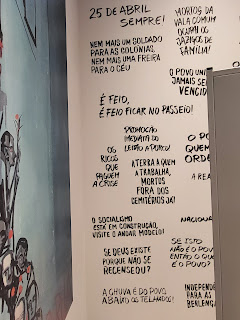 25 DE ABRIL
SEMPRE!
NEM MAIS UM SOLDADO
PARA AS COLÓNIAS,
NEM MAIS UMA FREIRA
PARA O CÉU
É FEIO,
É FEIO FICAR NO PASSEIO!
PROMOÇÃO
IMEDIATA DO
LEITÃO A PORCO!
OS
RICOS
QUE
PAGUEM
A CRISE
A TERRA A QUEM
A TRABALHA,
MORTOS
FORA DOS
CEMITÉRIOS JÁ!
O SOCIALISMO
ESTÁ EM CONSTRUÇÃO,
VISITE O ANDAR MODELO!
SE DEUS EXISTE
PORQUE NÃO SE
RECENSEOU?
A CHUVA É DO POVO
ABAIXO OS TELHADOS!
MORTOS DA
VALA COMUM
OCUPAI OS
JAZIGOS DE
FAMÍLIA!
O POVO UNI
JAMAIS SE
VENCI
O PO
QUEM
ORDE
A REA
NACIONA
SE ISTO
NÃO É O PO
ENTÃO O QUE
É O POVO?
INDEPEND
PARA AS
BERLENGA